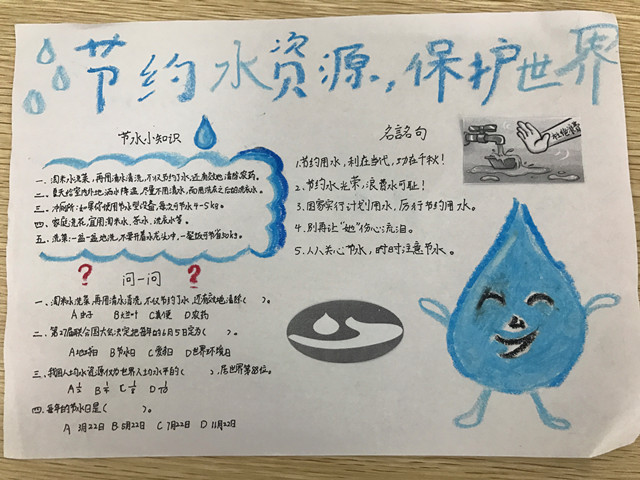 节约水资源,保护世界
节水小知识
一、淘米水洗菜,再用清水清洗,不仅节约了水,还有效地清除农药。
二、夏天给室内外地面洒水降温,尽量不用清水,而用洗衣之后的洗衣水。
三、冲厕所:如果你使用节水型设备,每次可节水4-5kg。
四、家庭浇花,宜用淘米水、茶水、洗衣水等。
五、洗菜:一盆一盆地洗,不要开着水龙头冲,一餐饭可节省50kg。
名言名句
1.节约用水,利在当代,功在千秋!
2、节约水光荣,浪费水可耻!
3、国家实行计划用水,厉行节约用水。
4、别再让"她"伤心流泪。
5、人人关心节水,时时注意节水。
? 问一问 ?
一、淘米水洗菜,再用清水清洗,不仅节约了水,还有效地清除( )。
A 虫子 B 烂叶 C 粪便 D 农药
二、第27届联合国大会决定把每年的6月5日定为( )。
A 地球日 B 节水日 C 爱水日 D 世界环境日
三、我国人均水资源仅为世界人均水平的( ),居世界第88位。
四、每年的节水日是( )。
A 3月22日 B 5月22日 C 7月22日 D 11月22日